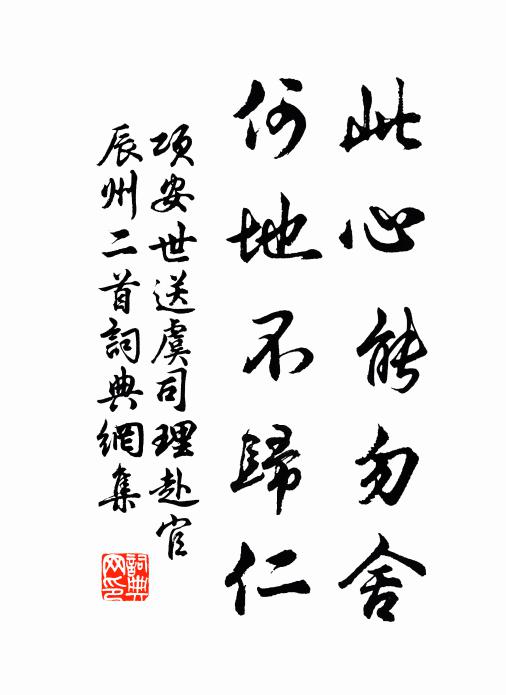 此心能勿舍
何地不歸仁
項安世送虞司理赴官
辰州二首詞典網集
詞典
网印